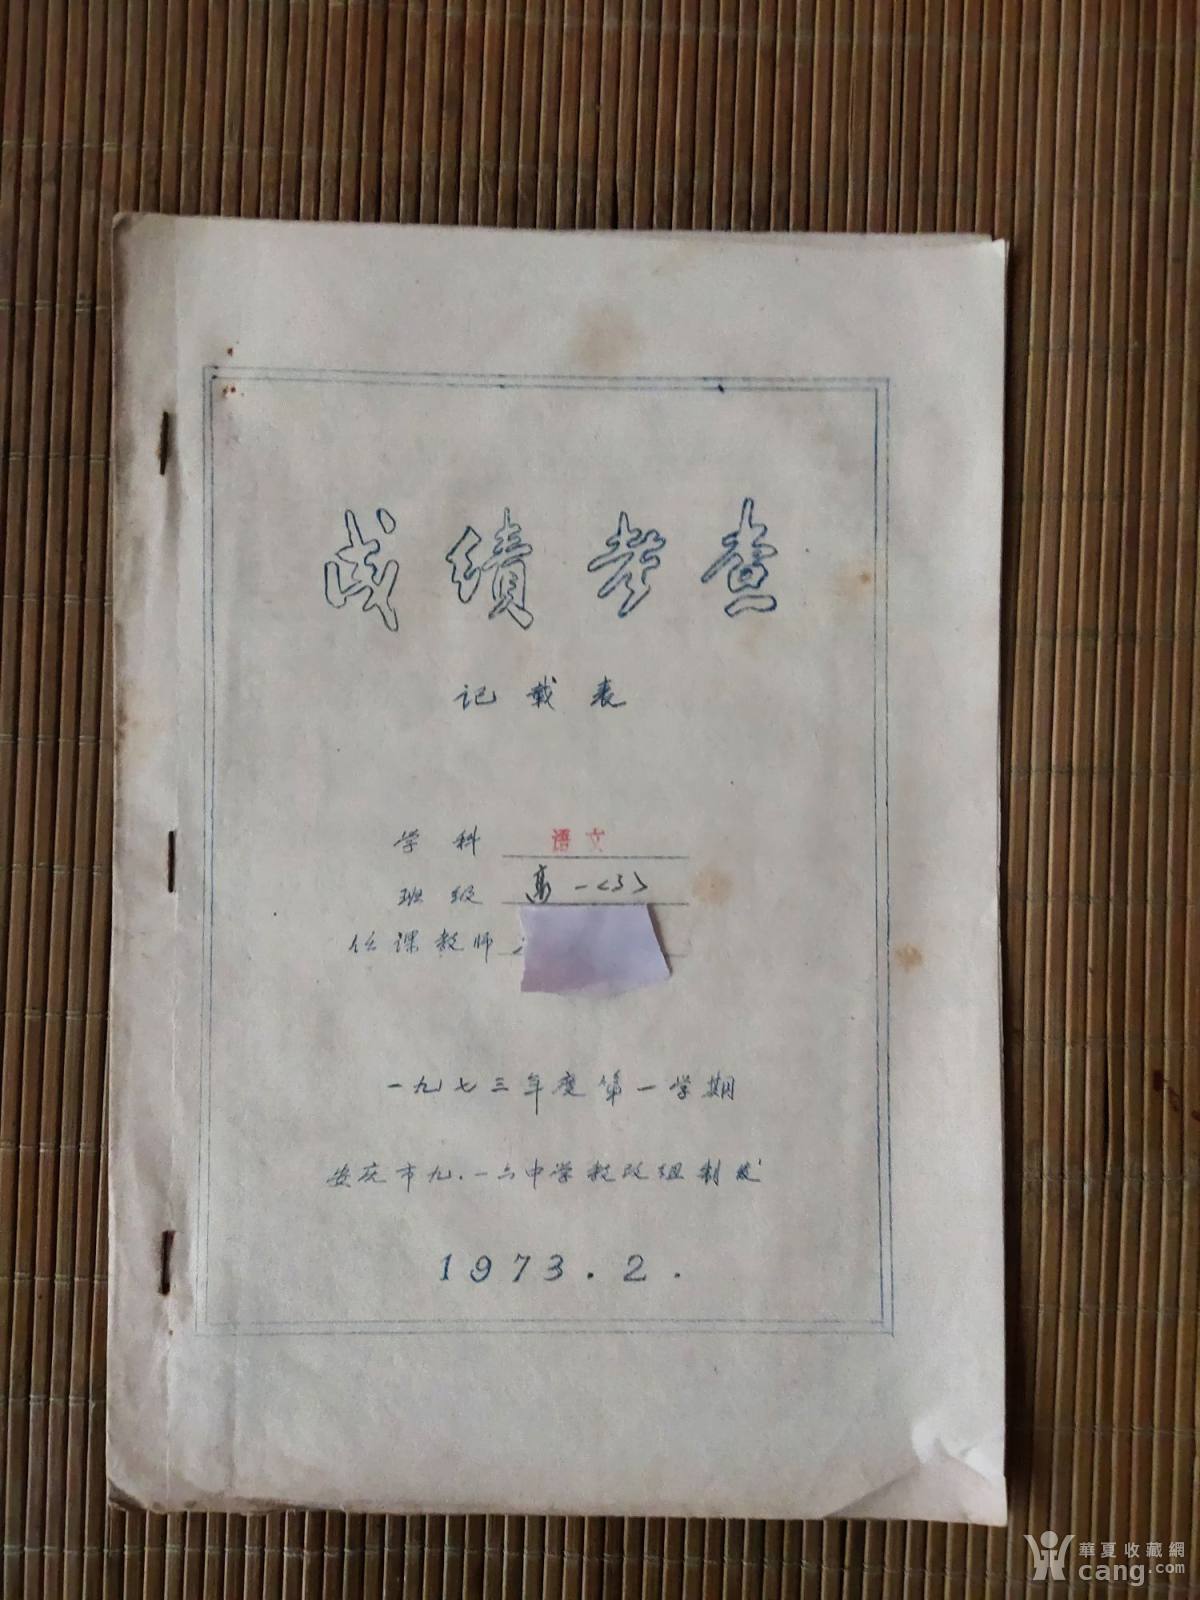 成绩考查
记载表
学科 语文
班级 高一<3>
任课教师
一九七三年度第一学期
安庆市九.一六中学教改组制发
1973.2.
華夏收藏網
cang.com